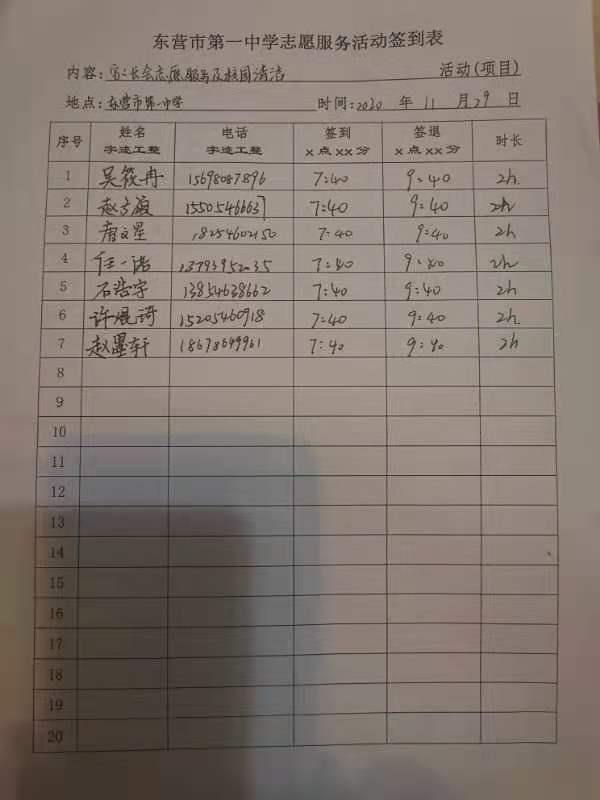 东营市第一中学志愿服务活动签到表
内容：家长会志愿服务及校园清洁 活动(项目)
地点：东营市第一中学 时间：2020 年 11 月 29 日
序号 姓名 字迹工整 电话 字迹工整 签到 X点XX分 签退 X点XX分 时长
1 吴筱冉 15698087896 7:40 9:40 2h.
2 15505466637 7:40 9:40 2h
3 唐文星 18254602150 7:40 9:40 2h
4 任一诺 13793952035 7:40 9:40 2h
5 石浩宇 13854638662 7:40 9:40 2h
6 许展诗 15205460918 7:40 9:40 2h.
7 赵墨轩 18678649961 7:40 9:40 2h
8
9
10
11
12
13
14
15
16
17
18
19
20